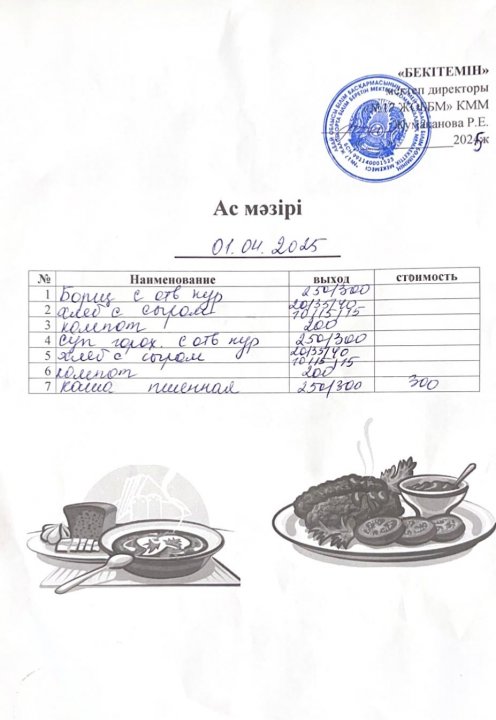 «БЕКІТЕМІН»
мектеп директоры
«№17 ЖОББМ» КММ
Жумаканова Р.Е.
2025 ж
Ас мәзірі
01.04.2025
№ Наименование выход стоимость
1 Борщ с отв кур 250/300
2 хлеб с сыром 20/35/40 10/15/15
3 компот 200
4 суп горох. с отв кур 250/300
5 хлеб с сыром 20/35/40 10/15/15
6 компот 200
7 каша пшенная 250/300 300